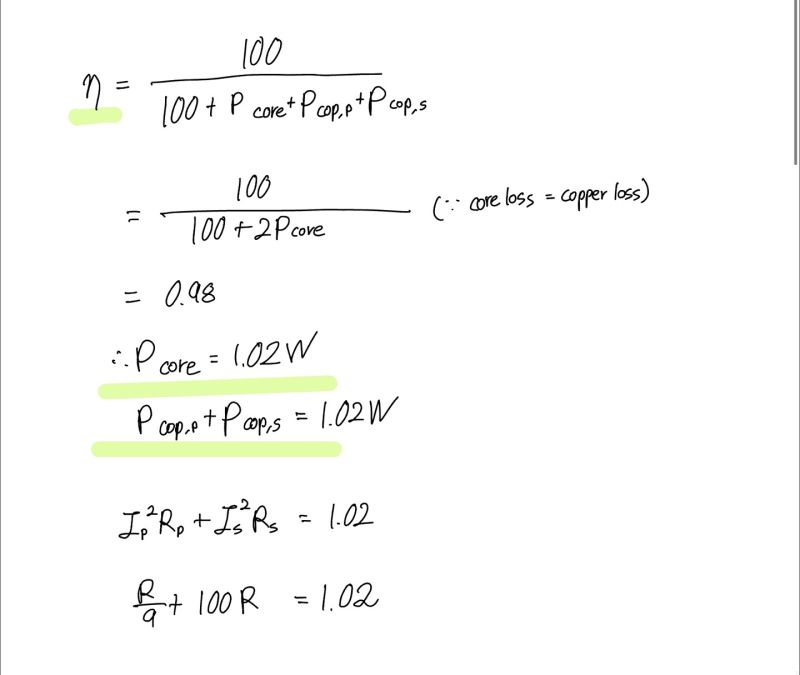 η = 100 / (100 + P core + P cop,p + P cop,s)
= 100 / (100 + 2P core) (∵ core loss = copper loss)
= 0.98
∴ P core = 1.02W
P cop,p + P cop,s = 1.02W
I_p²R_p + I_s²R_s = 1.02
R/9 + 100R = 1.02